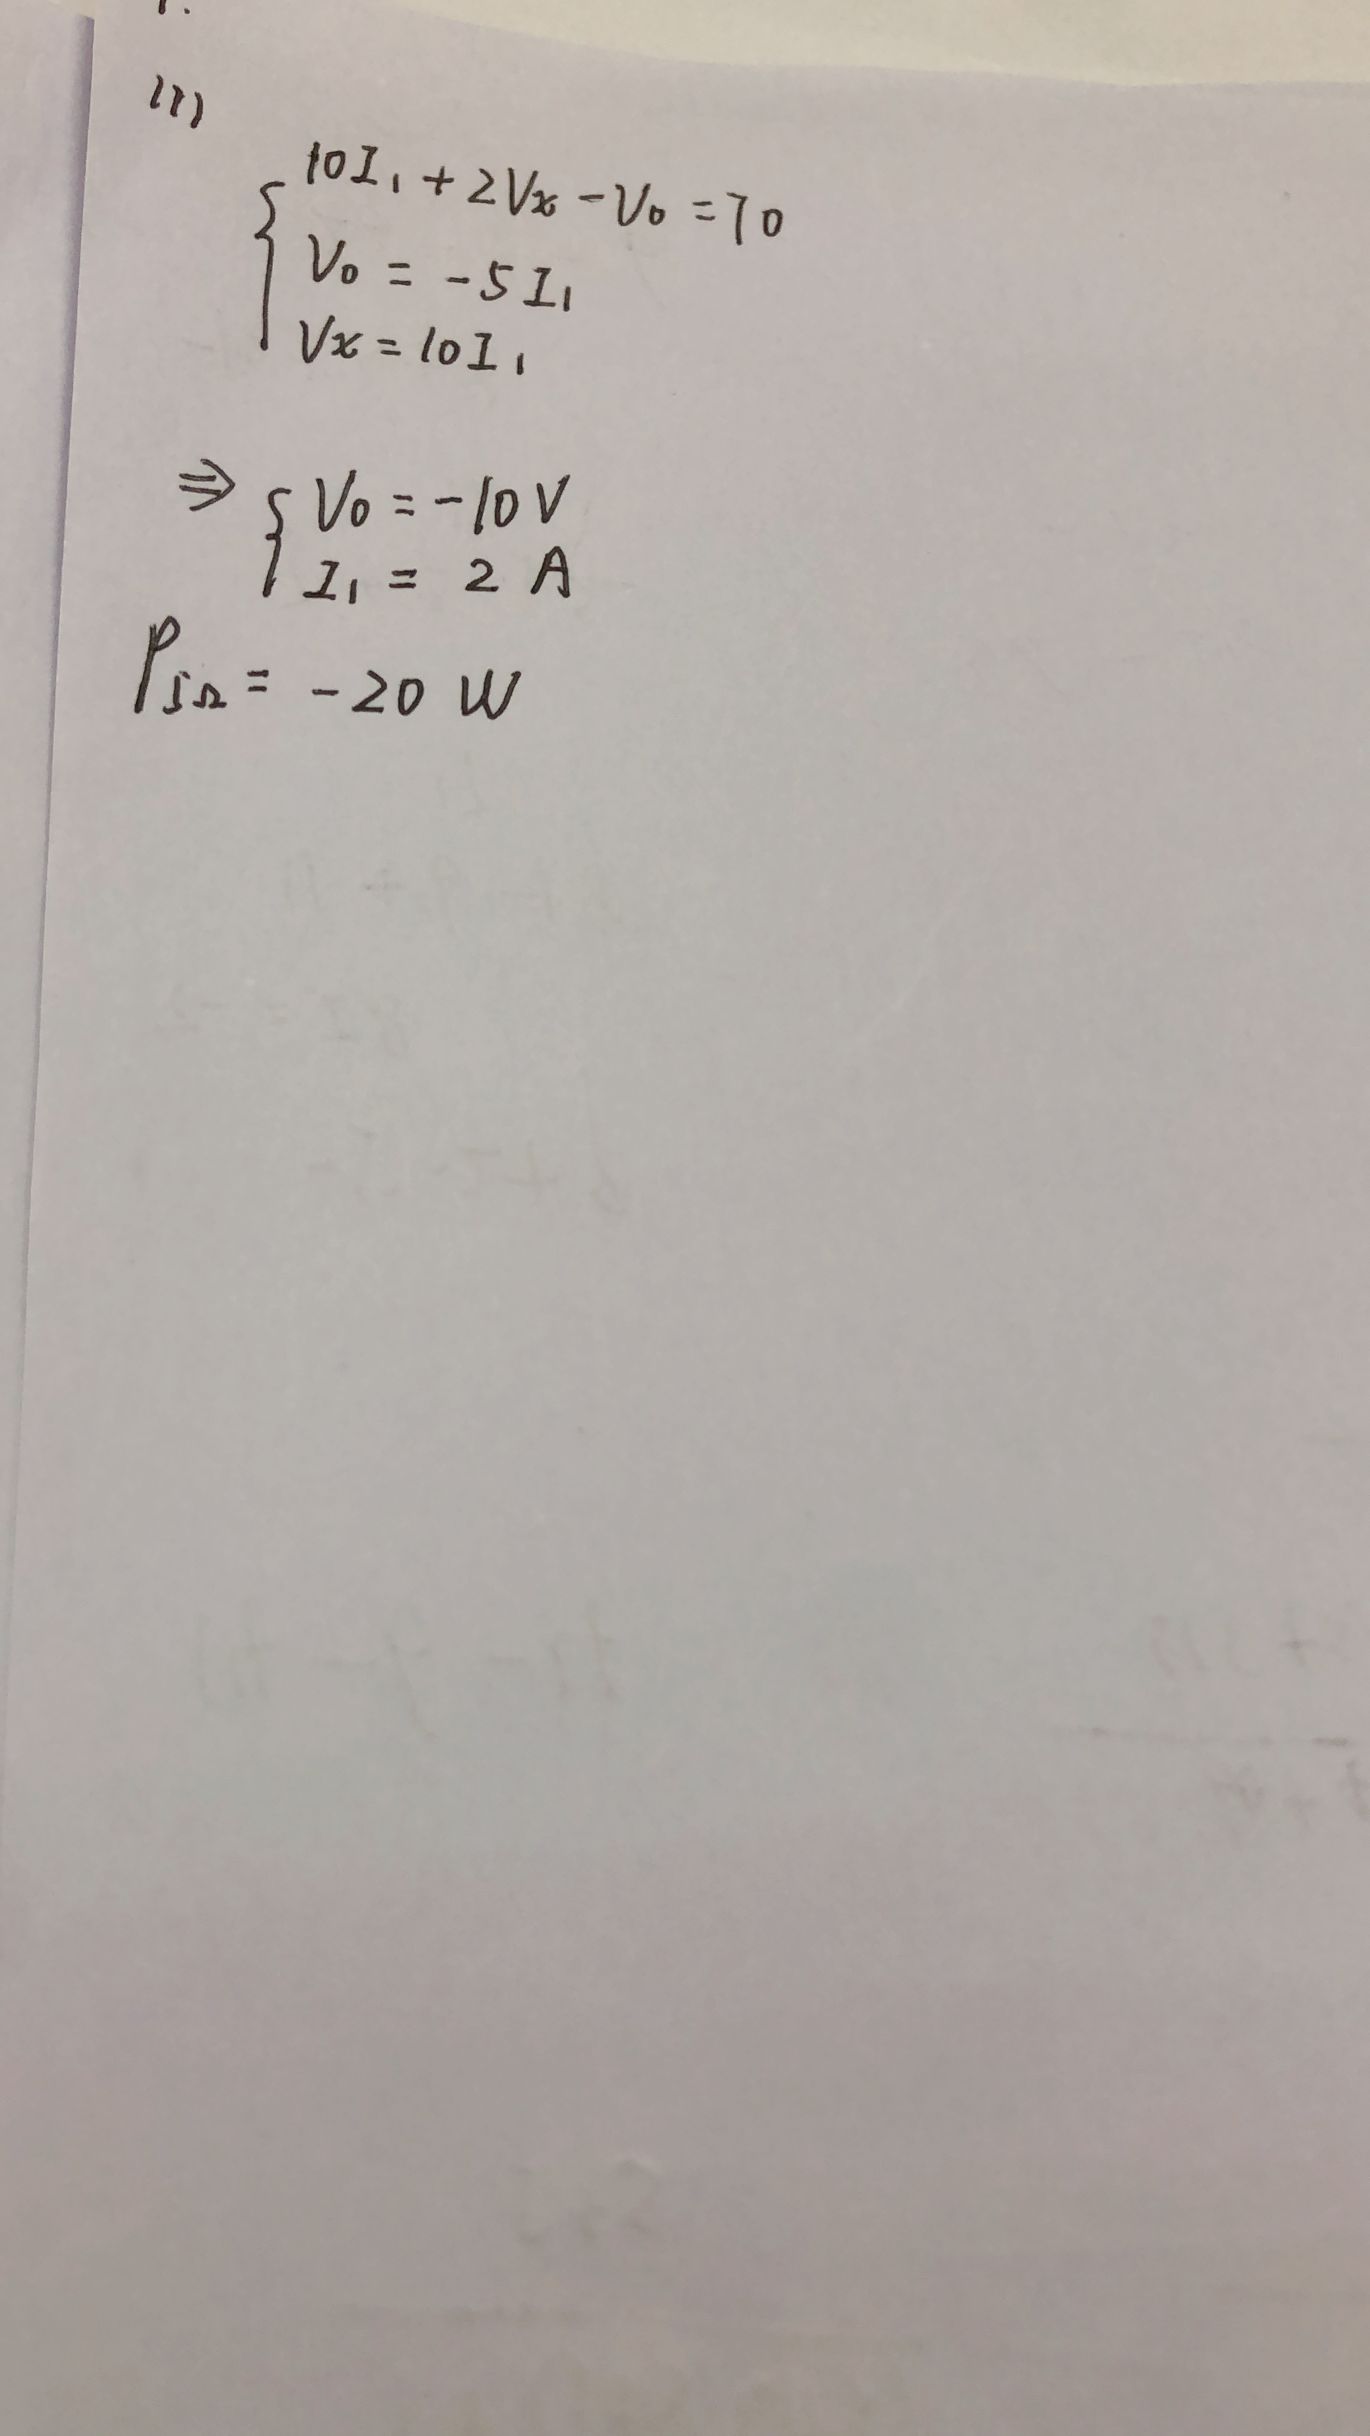 1.
(1)
10I₁ + 2Vx - V₀ = 70
V₀ = -5I₁
Vx = 10I₁
⇒ { V₀ = -10V
I₁ = 2 A
P₅Ω = -20 W